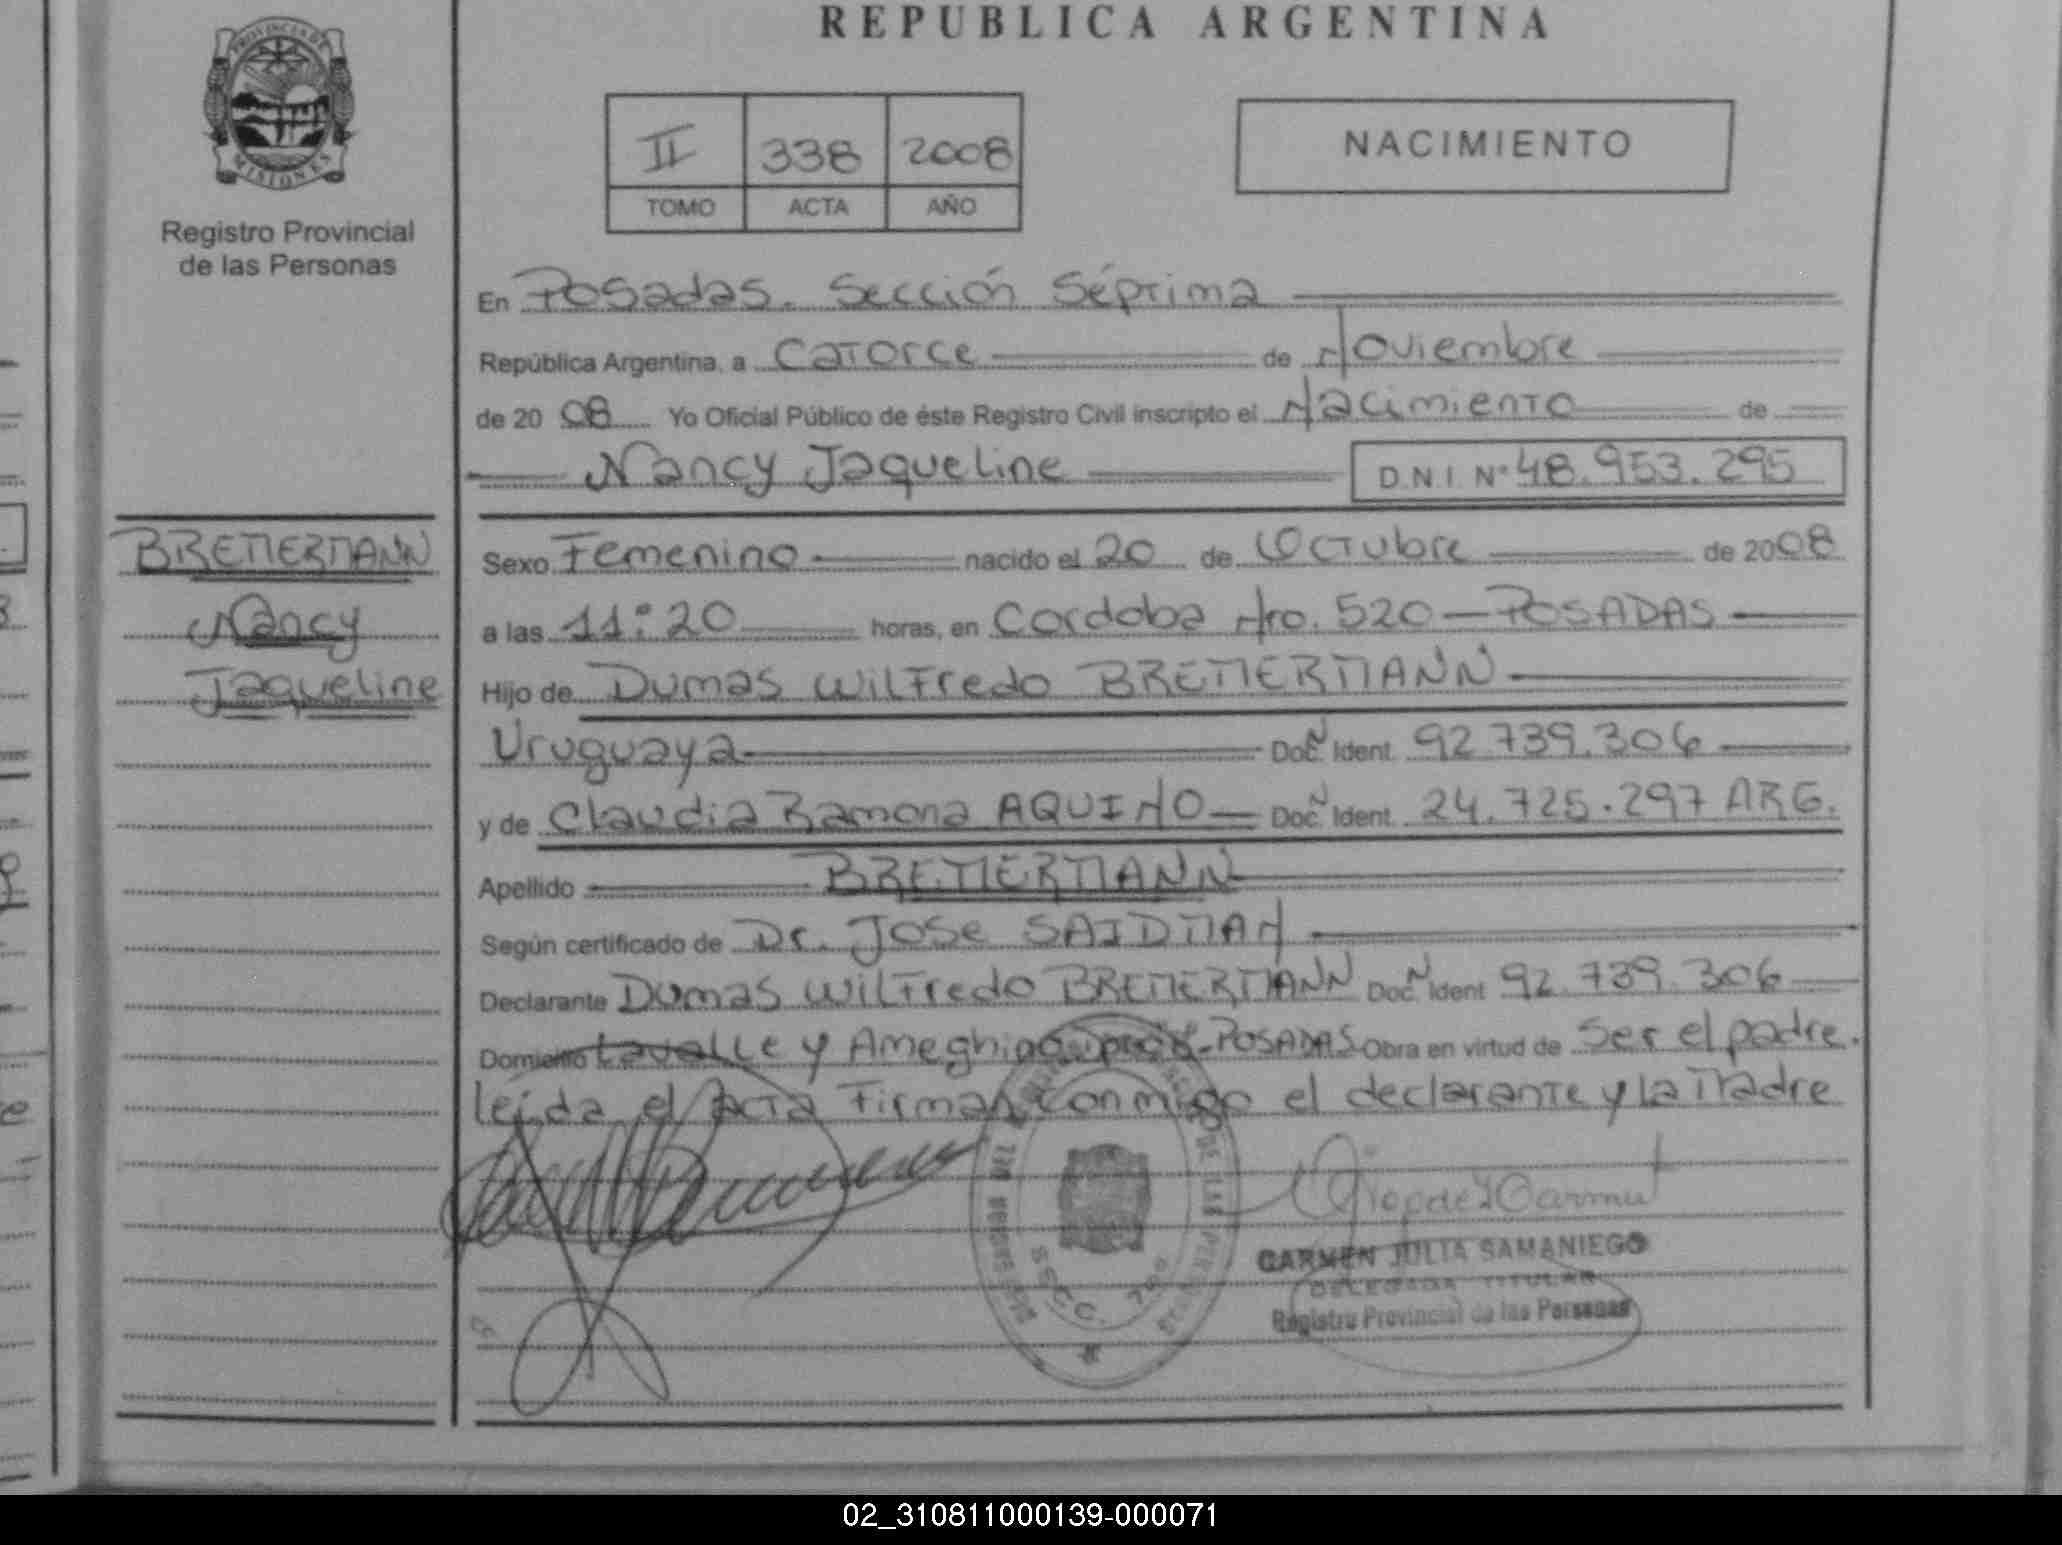 REPUBLICA ARGENTINA
PROVINCIA DE
MISIONES
Registro Provincial
de las Personas
II 338 2008
TOMO ACTA AÑO
NACIMIENTO
En Posadas. Sección Séptima
República Argentina, a Catorce de Noviembre
de 20 08 Yo Oficial Público de éste Registro Civil inscripto el Nacimiento de
Nancy Jaqueline D.N.I. Nº 48.953.295
BREMERMANN
Nancy
Jaqueline
Sexo Femenino nacido el 20 de Octubre de 2008
a las 11:20 horas, en Cordoba Nro. 520 - POSADAS
Hijo de Dumas Wilfredo BREMERMANN
Uruguaya Doc. N Ident. 92.739.306
y de Claudia Ramona AQUINO Doc. N Ident. 24.725.297 ARG.
Apellido BREMERMANN
Según certificado de Dr. JOSE SAIDMAN
Declarante Dumas Wilfredo BREMERMANN Doc. N Ident 92.739.306
Domicilio Lavalle y Ameghino - POSADAS Obra en virtud de Ser el padre.
leída el acta firman conmigo el declarante y la Madre
CARMEN JULIA SAMANIEGO
DELEGADA TITULAR
Registro Provincial de las Personas
02_310811000139-000071